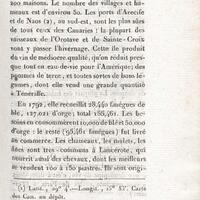 200 maisons. Le nombre des villages et ha-
meaux est d'environ 50. Les ports d'Arecife
et de Naos (2), au sud-est, sont les plus sûrs
de tous ceux des Canaries : la plupart des
vaisseaux de l'Orotave et de Sainte-Croix
vont y passer l'hivernage. Cette île produit
du vin de médiocre qualité, qu'on réduit pres-
que tout en eau-de-vie pour l'Amérique; des
pommes de terre, et toutes sortes de bons lé-
gumes, dont elle vend une grande quantité
à Ténériffe.
En 1792, elle recueillit 28,440 fanègues de
blé, 127,021 d'orge, total 155,461. Les be-
soins en consommèrent 10,000 de blé et 50,000
d'orge : le reste (95,461 fanègues) fut livré
au commerce. Les chameaux, les mulets, les
ânes sont très-communs à Lancerote, qui
nourrit aussi des chevaux, dont les meilleurs
se vendent 100 à 150 piastres. Ils sont origi-
(1) Latit., 29° 4'.—Longit., 15° 53'. Carte
des Can. au dépôt.